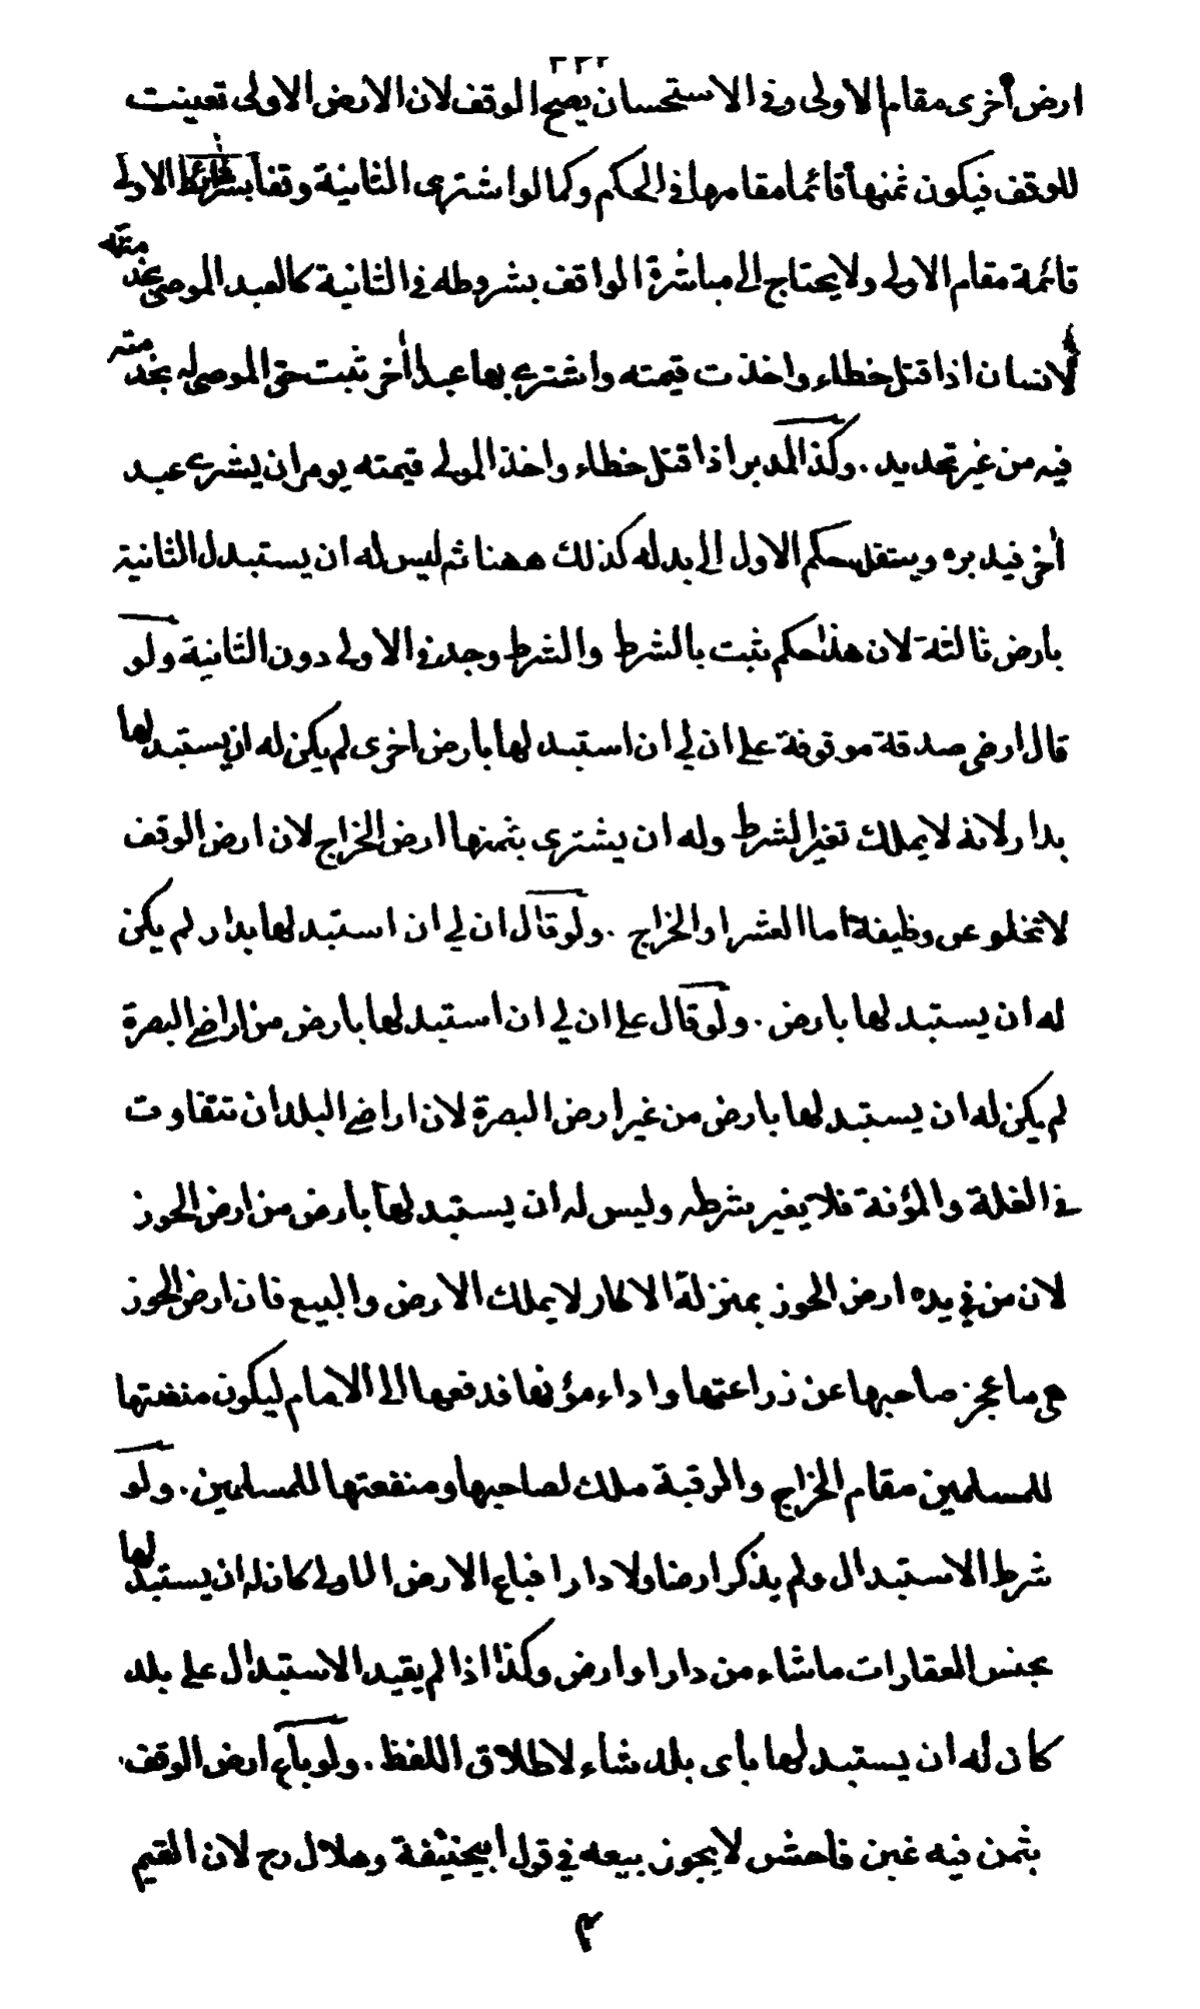 ٣٢٢
ارض أخرى مقام الاولى وفى الاستحسان يصح الوقف لان الارض الاولى تعينت
للوقف فيكون ثمنها قائما مقامها فى الحكم وكما لو اشترى الثانية وقفا بشرائط الاولى
قائمة مقام الاولى ولا يحتاج الى مباشرة الواقف بشروطه فى الثانية كالعبد الموصى بخدمته
لانسان اذا قتل خطاء واخذت قيمته واشترى بها عبدا أخر ثبت حق الموصى له بخدمته
فيه من غير تجديد . وكذا المدبر اذا قتل خطاء واخذ المولى قيمته يومر ان يشترى عبد
أخر فيدبره وينتقل حكم الاول الى بدله كذلك ههنا ثم ليس له ان يستبدل الثانية
بارض ثالثة لان هذا حكم ثبت بالشرط والشرط وجد فى الاولى دون الثانية ولو
قال ارضى صدقة موقوفة على ان لى ان استبدلها بارض اخرى لم يكن له ان يستبدلها
بدار لانه لا يملك تغير الشرط وله ان يشترى بثمنها ارض الخراج لان ارض الوقف
لا تخلو عن وظيفة اما العشر او الخراج . ولو قال ان لى ان استبدلها بدار لم يكن
له ان يستبدلها بارض . ولو قال على ان لى ان استبدلها بارض من اراضى البصرة
لم يكن له ان يستبدلها بارض من غير ارض البصرة لان اراضى البلدان تتفاوت
فى الغلة والمؤنة فلا يغير شرطه وليس له ان يستبدلها بارض من ارض الحوز
لان من فى يده ارض الحوز بمنزلة الاكار لا يملك الارض والبيع فان ارض الحوز
هى ما عجز صاحبها عن زراعتها واداء مؤنها فدفعها الى الامام ليكون منفعتها
للمسلمين مقام الخراج والرقبة ملك لصاحبها ومنفعتها للمسلمين . ولو
شرط الاستبدال ولم يذكر ارضا ولا دارا فباع الارض الاولى كان له ان يستبدلها
بجنس العقارات ماشاء من دار او ارض وكذا اذا لم يقيد الاستبدال على بلد
كان له ان يستبدلها باى بلد شاء لاطلاق اللفظ . ولو باع ارض الوقف
بثمن فيه غبن فاحش لا يجوز بيعه فى قول ابيحنيفة وهلال رح لان القيم